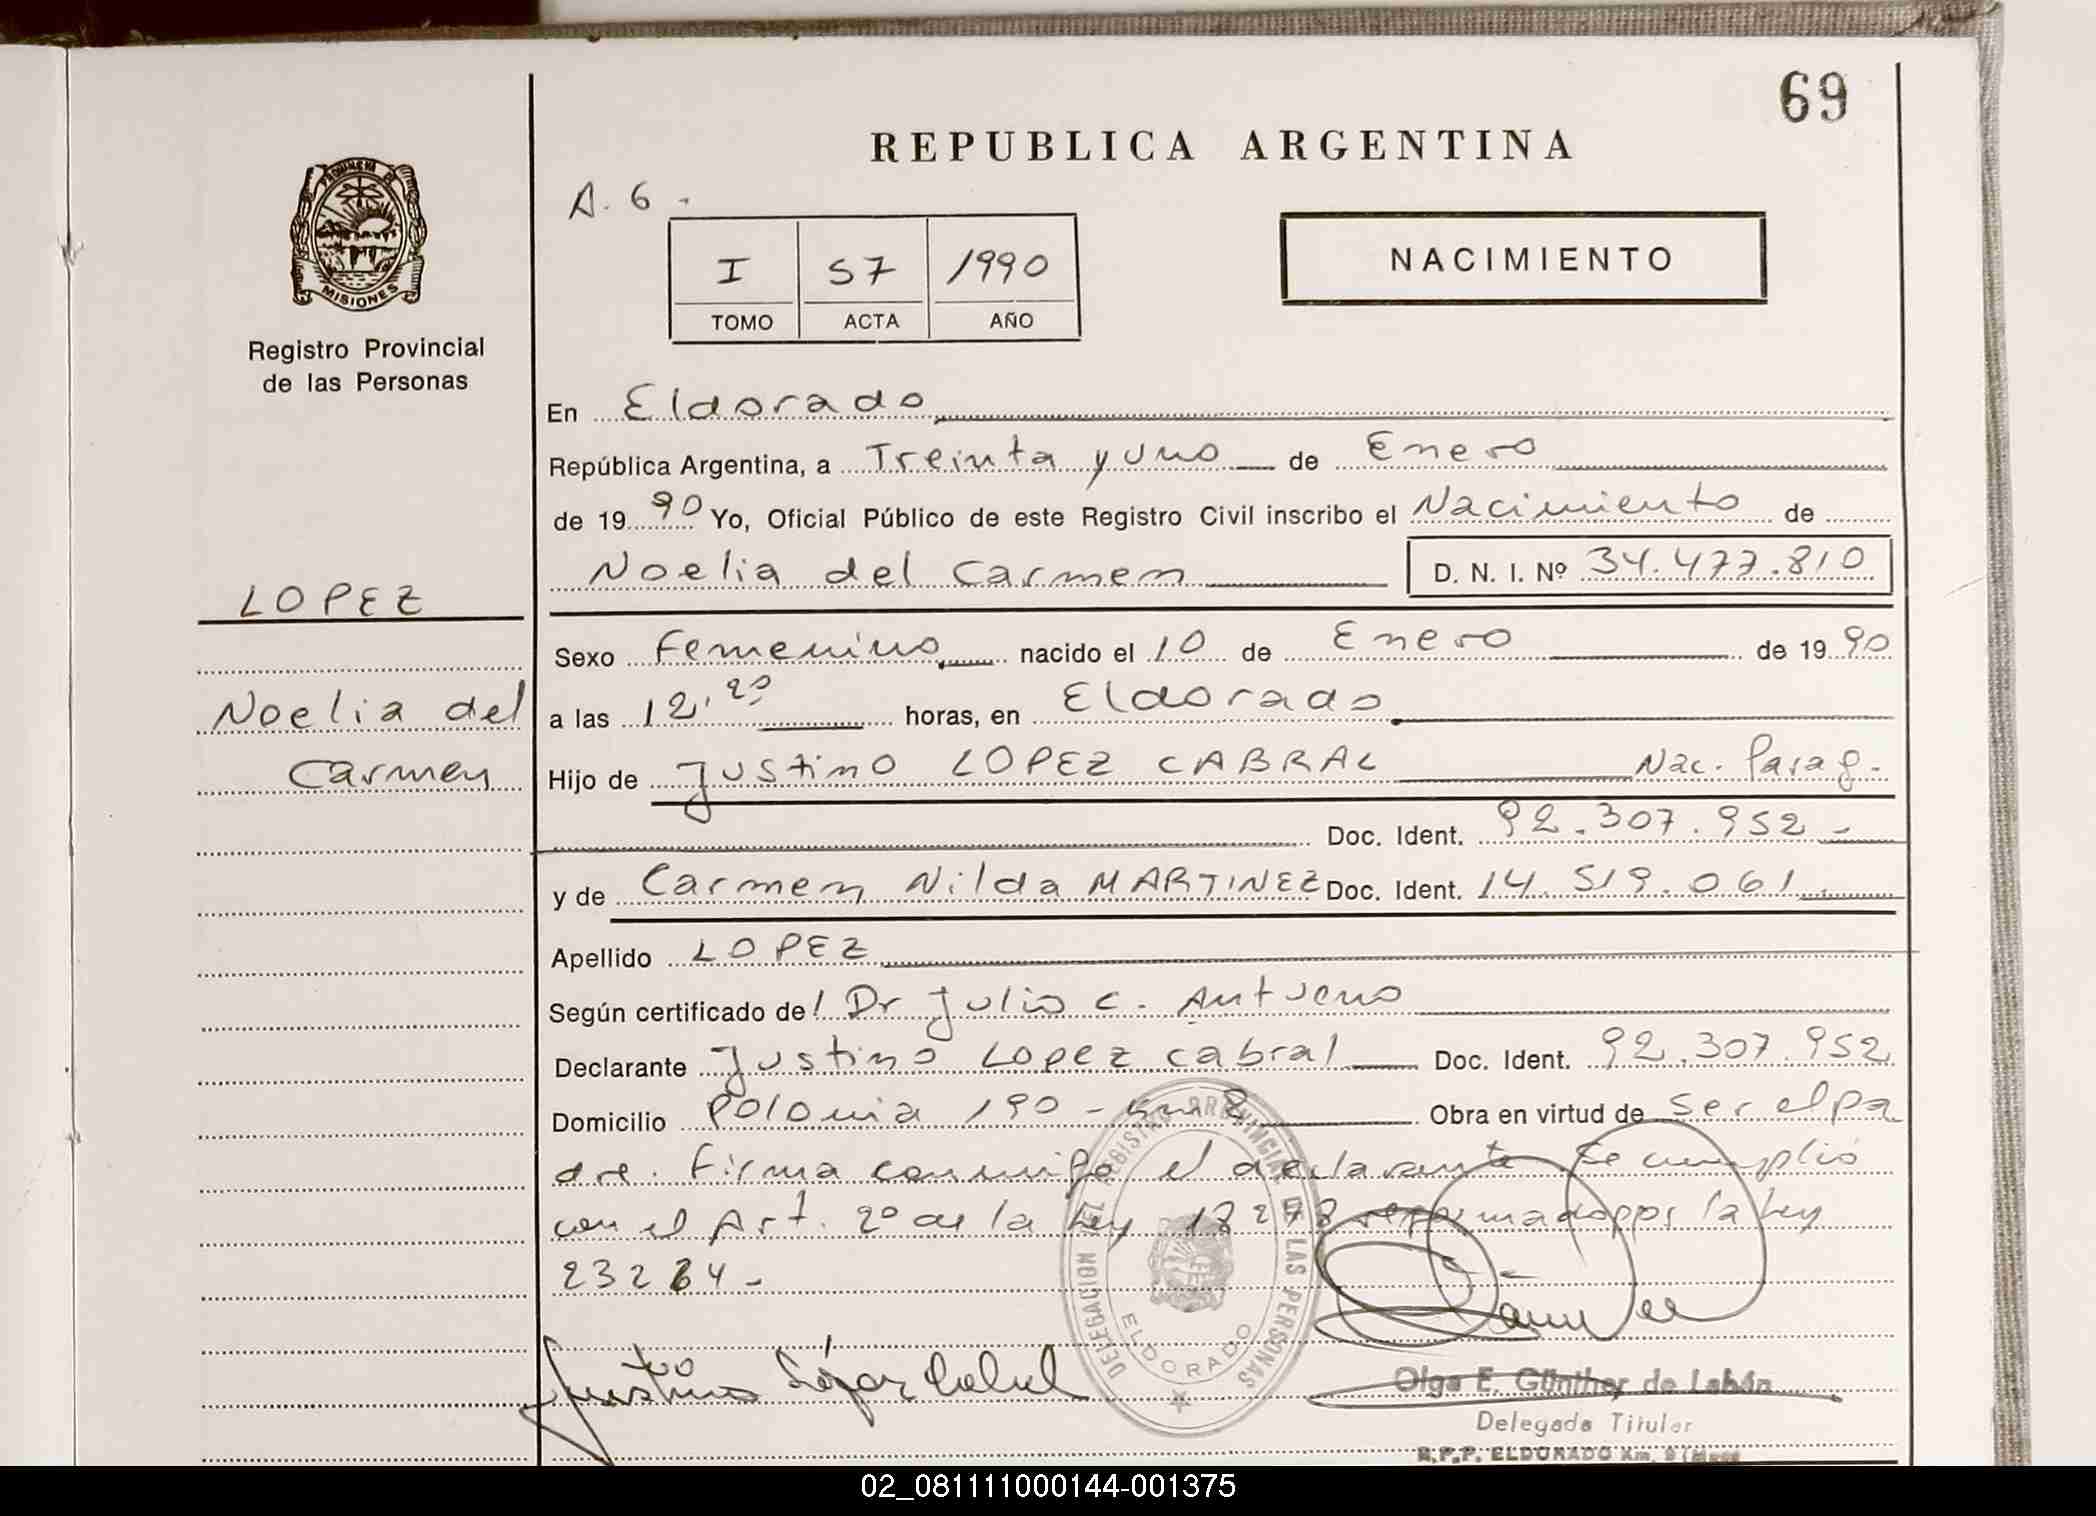 69
REPUBLICA ARGENTINA
A. 6 -
PROVINCIA DE
MISIONES
Registro Provincial
de las Personas
I 57 1990
TOMO ACTA AÑO
NACIMIENTO
En Eldorado
República Argentina, a Treinta y uno de Enero
de 1990 Yo, Oficial Público de este Registro Civil inscribo el Nacimiento de
Noelia del Carmen D. N. I. Nº 34.477.810
LOPEZ
Noelia del
Carmen
Sexo Femenino nacido el 10 de Enero de 1990
a las 12,20 horas, en Eldorado
Hijo de Justino LOPEZ CABRAL Nac. Parag.
Doc. Ident. 92.307.952-
y de Carmen Nilda MARTINEZ Doc. Ident. 14.519.061.
Apellido LOPEZ
Según certificado de/ Dr Julio C. Antueno
Declarante Justino Lopez Cabral Doc. Ident. 92.307.952
Domicilio Polonia 190 - km 8 Obra en virtud de ser el pa
dre. Firma conmigo el declarante. Se cumplió
con el Art. 2º de la Ley 18248 reformado por la Ley
23264-
Justino López Cabral
DELEGACION DEL REGISTRO PROVINCIAL DE LAS PERSONAS
ELDORADO
Olga E. Günther de Labán
Delegada Titular
R.P.P. ELDORADO Km. 9 (Mnes
02_081111000144-001375